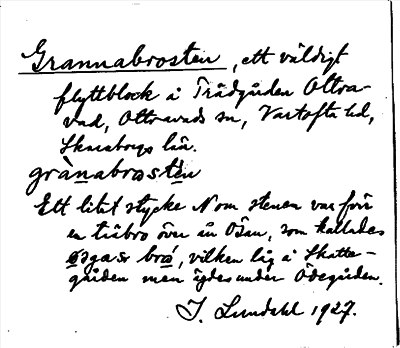 Grannabrosten, ett väldigt
flyttblock å Trädgården Ottra-
vad, Ottravads sn, Vartofta hd,
Skaraborgs län.
grànabrostèn
Ett litet stycke N om stenen var förr
en träbro över ån Ösan, som kallades
bro, vilken låg å Skatte-
gården men ägdes under Ödegården.
J. Lundahl 1927.